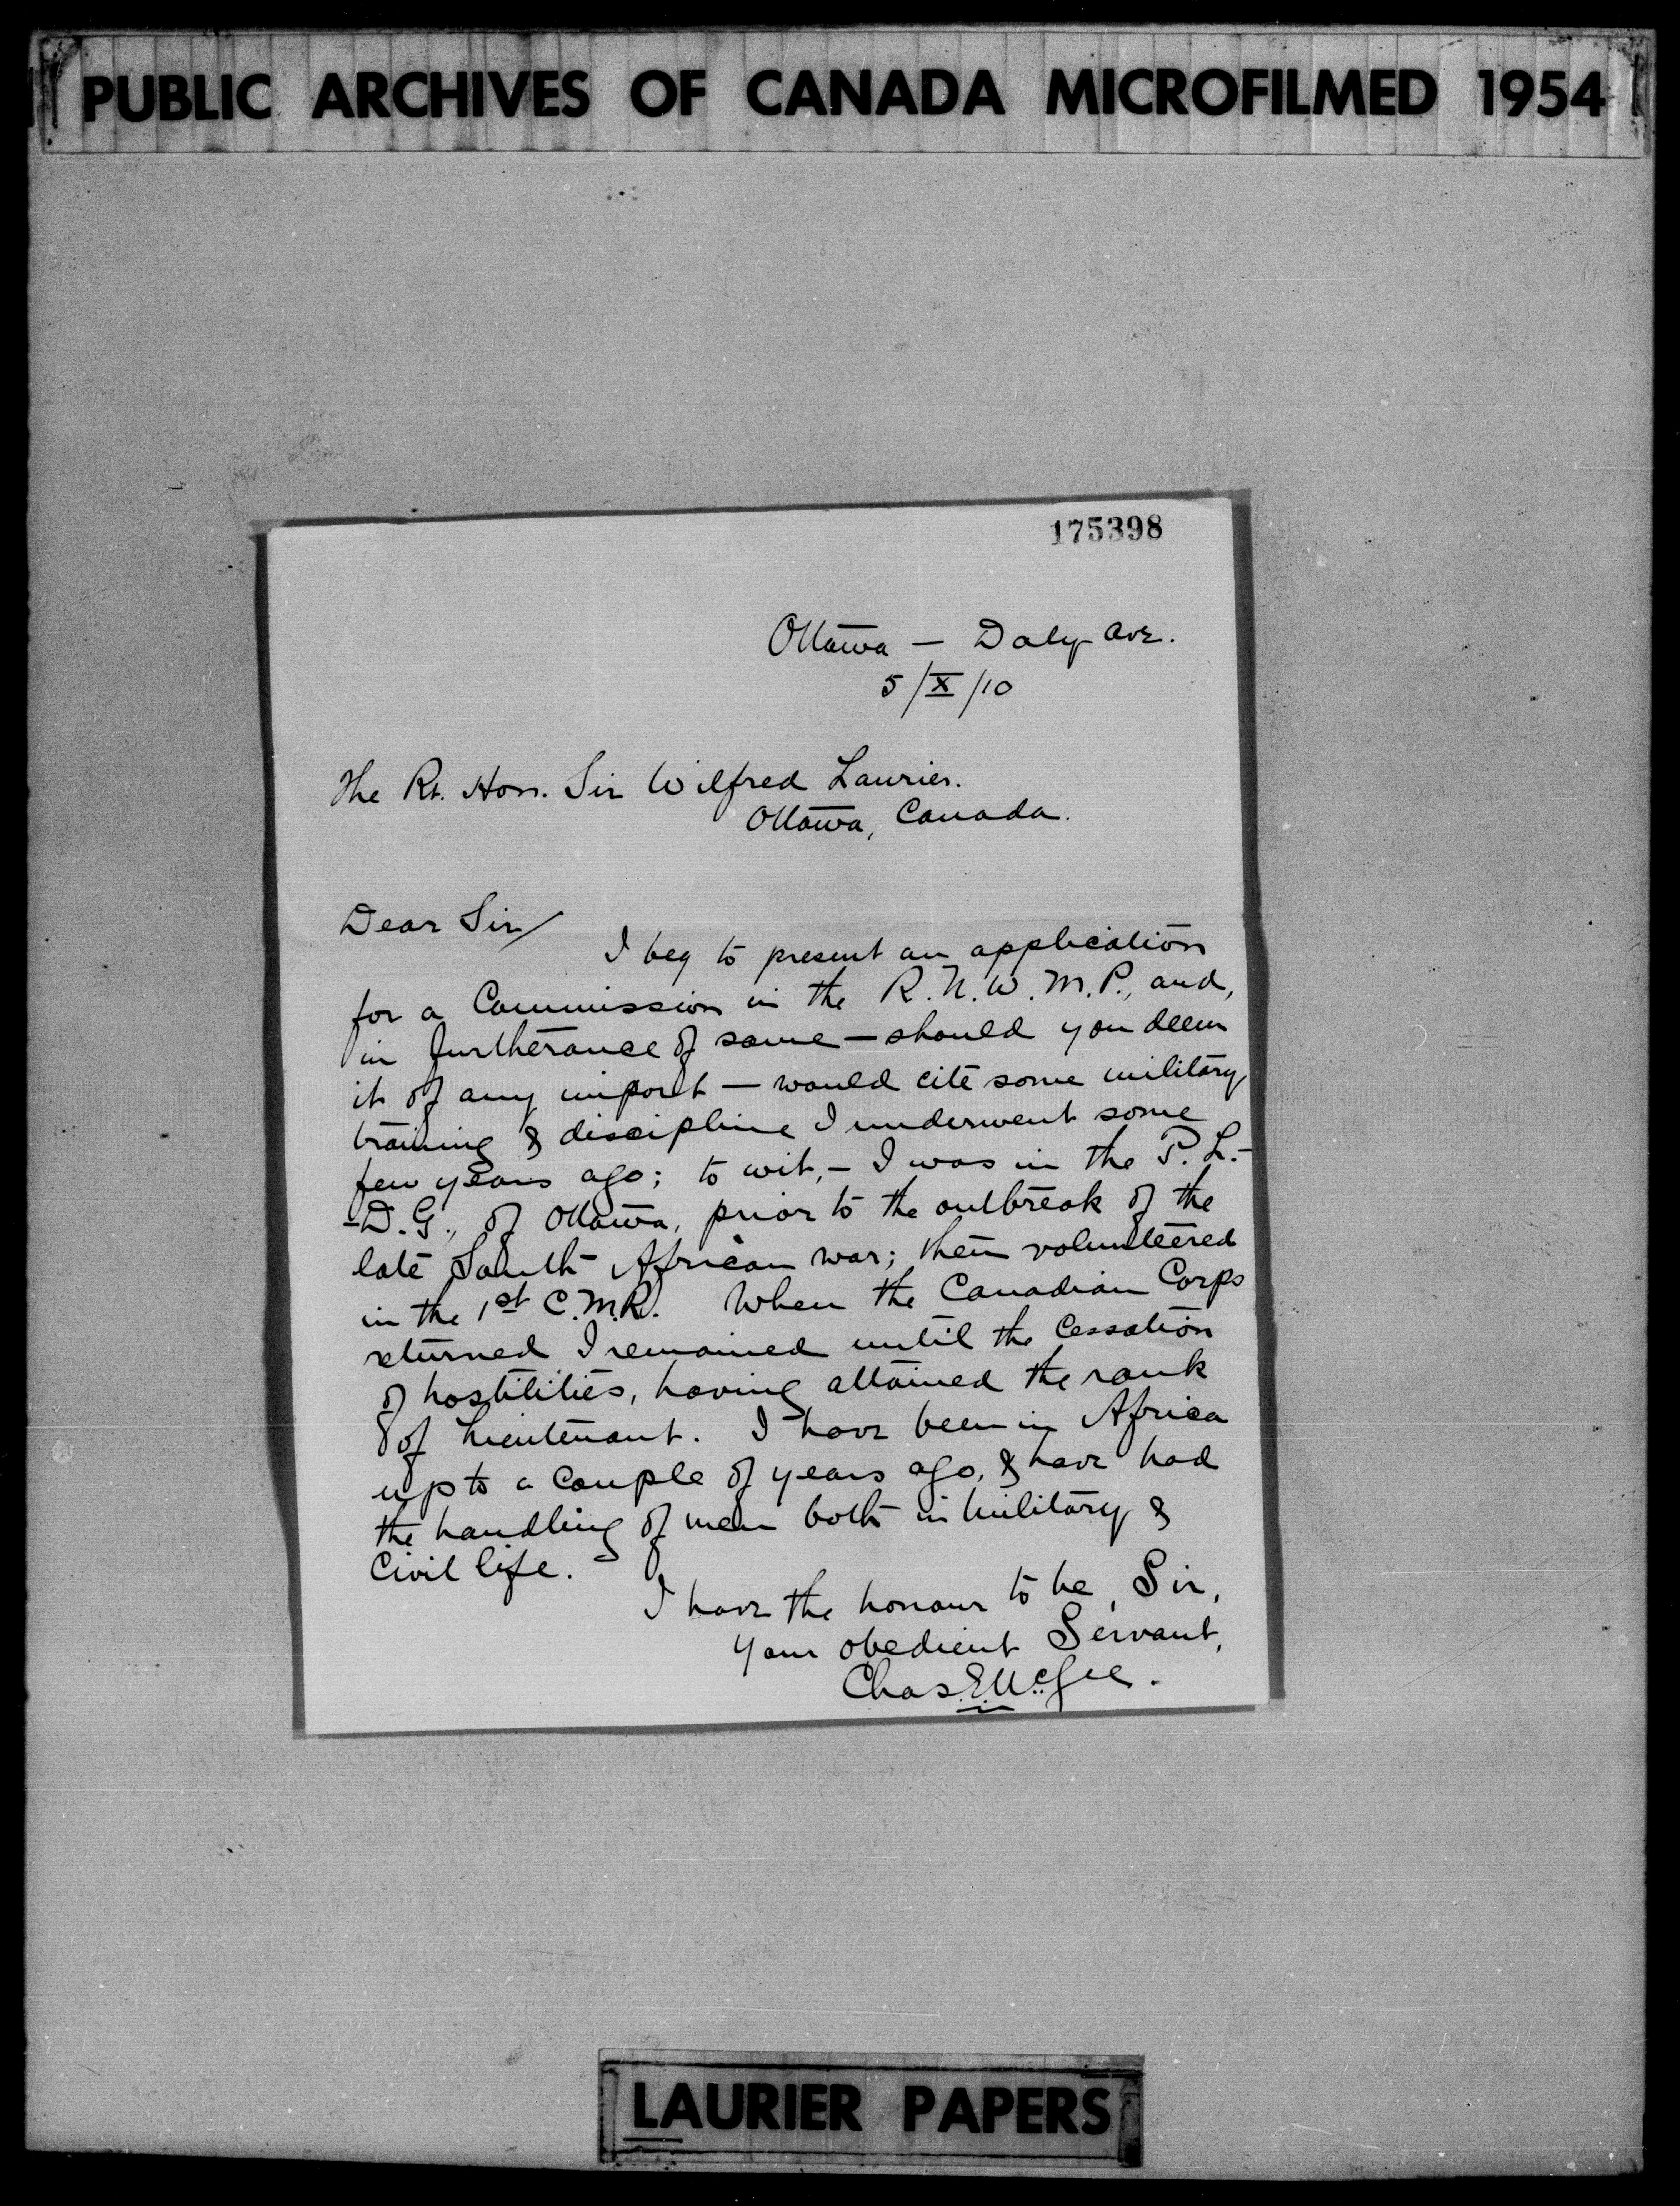 PUBLIC ARCHIVES OF CANADA MICROFILMED 1954
175398
Ottawa — Daly Ave.
5/X/10
The Rt. Hon. Sir Wilfred Laurier.
Ottawa, Canada.
Dear Sir/
I beg to present an application
for a Commission in the R.N.W.M.P., and,
in furtherance of same — should you deem
it of any import — would cite some military
training & discipline I underwent some
few years ago; to wit, — I was in the P.L.-
-D.G., of Ottawa, prior to the outbreak of the
late South African war; then volunteered
in the 1st C.M.R. When the Canadian Corps
returned I remained until the Cessation
of hostilities, having attained the rank
of Lieutenant. I have been in Africa
up to a couple of years ago, & have had
the handling of men both in military &
Civil life.
I have the honour to be, Sir,
Your obedient Servant,
Chas. E. McGee.
LAURIER PAPERS